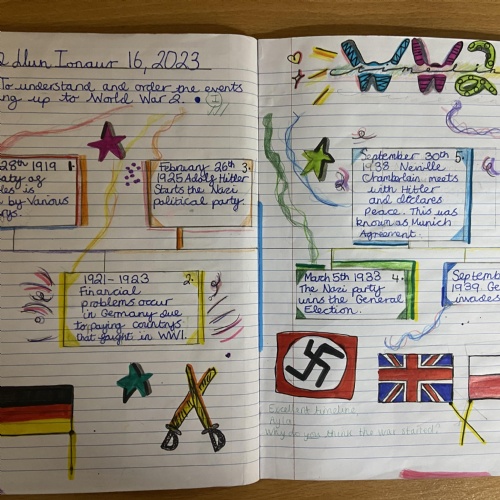 dlun Ionawr 16, 2023
To understand and order the events
ng up to World War 2.
28th 1919 1.
aty of
les' is
by Various
rys.
February 26th 3.
1925 Adolf Hitler
Starts the Nazi
political party.
1921 - 1923 2.
Financial
problems occur
in Germany due
to paying countrys
that faught in WW1.
WW2
timeline
September 30th 5.
1938 Neville
Chamberlain meets
with Hitler
and declares
Peace. This was
known as Munich
Agreement.
March 5th 1933 4.
The Nazi party
wins the General
Election.
Septemb
1939. Ge
invades
Excellent timeline
Why do you think the war started?